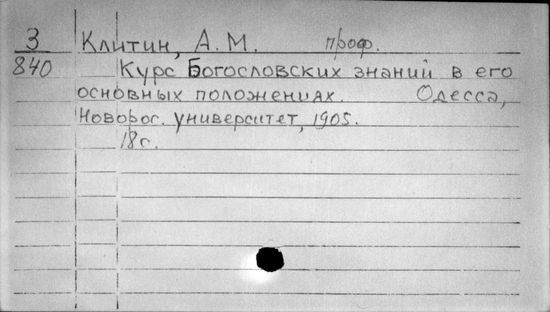 З Клитин, А. М. проф.
840 Курс Богословских знаний в его
основных положениях. Одесса,
Новорос. университет, 1905.
18 с.